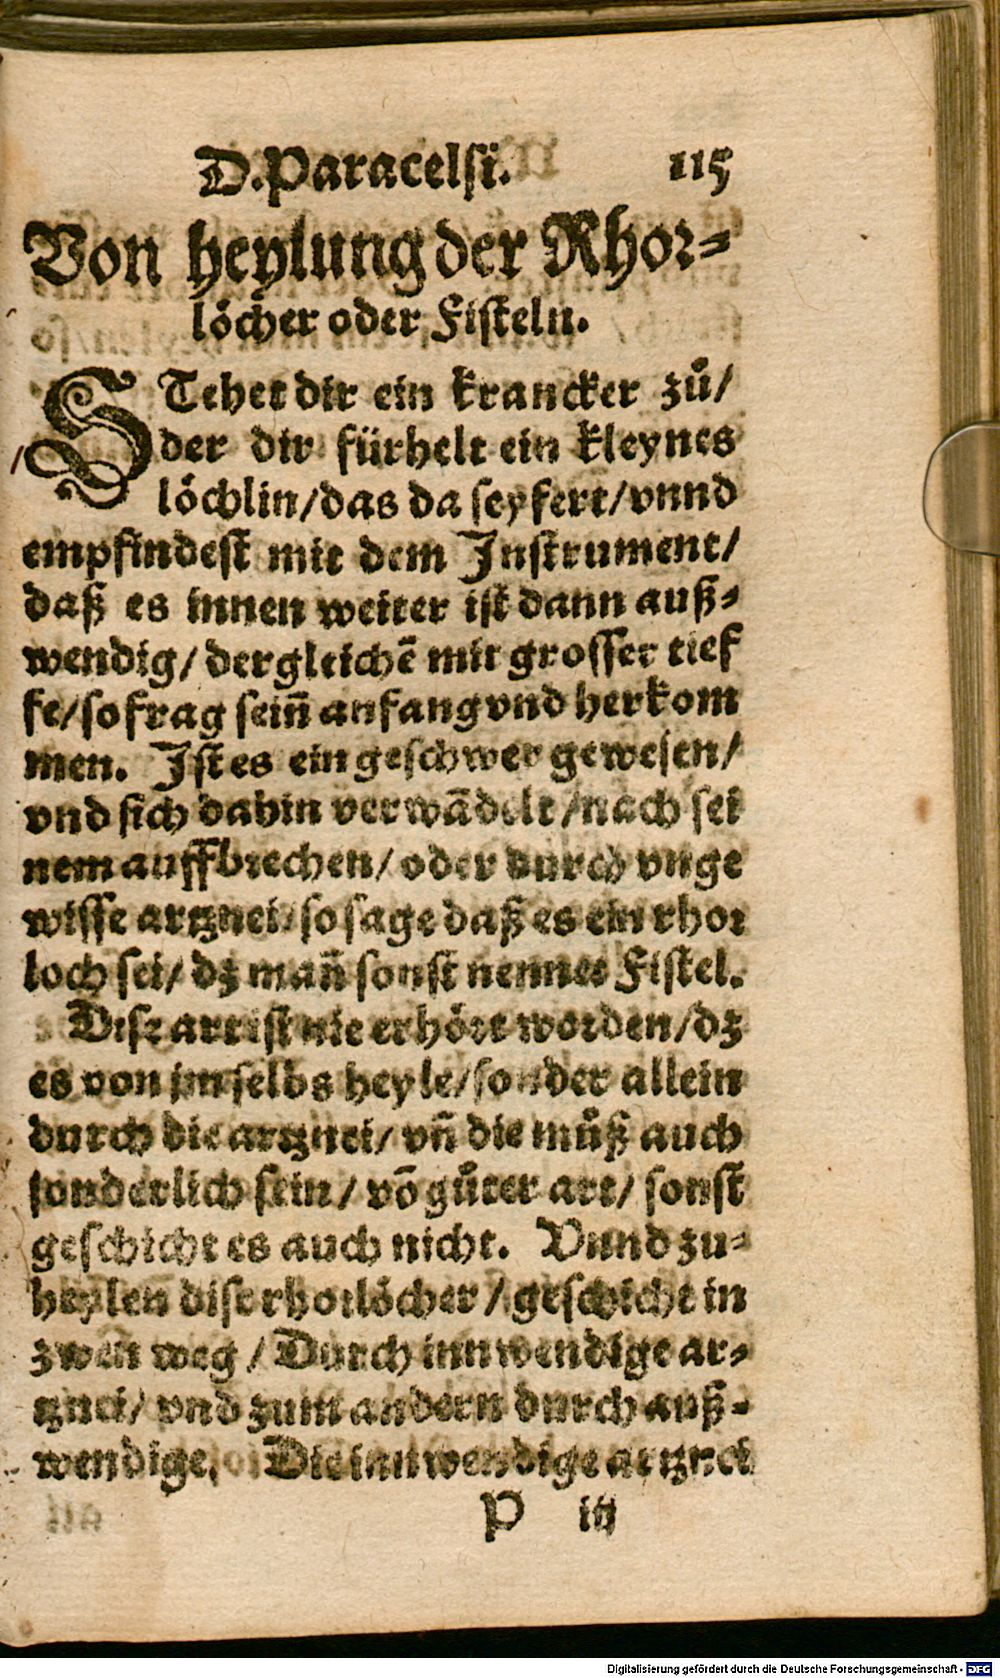 D. Paracelsi. 115
Von heylung der Rhor-
löcher oder Fisteln.
STehet dir ein krancker zů/
der dir fürhelt ein kleynes
löchlin/das da seyfert/vnnd
empfindest mit dem Instrument/
daß es innen weiter ist dann auß-
wendig/dergleichē mit grosser tief
fe/so frag sein̄ anfang vnd herkom
men. Ist es ein geschwer gewesen/
vnd sich dahin verwādelt/nach sei
nem auffbrechen/oder durch vnge
wisse artznei/so sage daß es ein rhor
loch sei/dz man̄ sonst nennet Fistel.
Dise art ist nie erhört worden/dz
es von jm selbs heyle/sonder allein
durch die artznei/vn̄ die můß auch
sonderlich sein/vō gůter art/sonst
geschicht es auch nicht. Vnnd zu-
heylen dise rhorlöcher/geschicht in
zwen weg/Durch innwendige ar-
tznei/vnd zum andern durch auß-
wendige. Die innwendige artznei
P iij
Digitalisierung gefördert durch die Deutsche Forschungsgemeinschaft - DFG